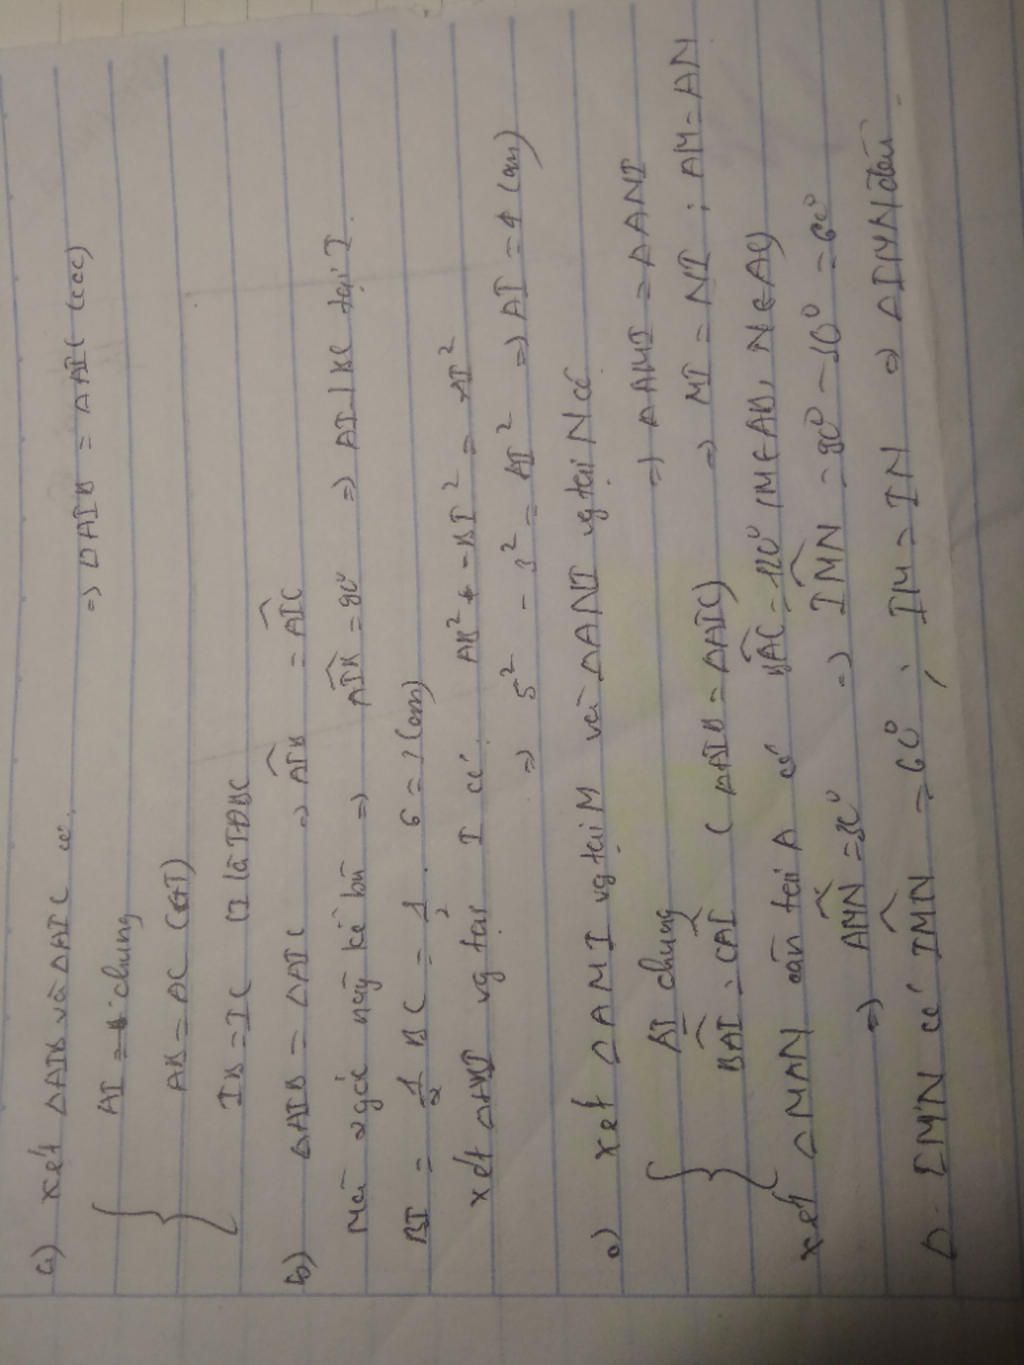 a) xét ΔAIB và ΔAIC có
AI = chung
AB = AC (GT)
IB = IC (I là TĐBC
=> ΔAIB = ΔAIC (ccc)
b) ΔAIB = ΔAIC => AIB = AIC
Mà 2 góc này kề bù => AIB = 90⁰ => AI⊥BC tại I.
BI = 1/2 BC = 1/2 . 6 = 3 (cm)
xét ΔABI vg tại I có. AB² - BI² = AI²
=> 5² - 3² = AI² => AI = 4 (cm)
c) xét ΔAMI vg tại M và ΔANI vg tại N có
AI chung
BAI = CAI ( ΔAIB = ΔAIC)
=> ΔAMI = ΔANI
=> MI = NI ; AM = AN
xét ΔMAN cân tại A có BAC = 120⁰ (M∈AB, N∈AC)
=> AMN = 30⁰ => IMN = 90⁰ - 30⁰ = 60⁰
Δ IMN có IMN = 60⁰ ; IM = IN => ΔIMN đều